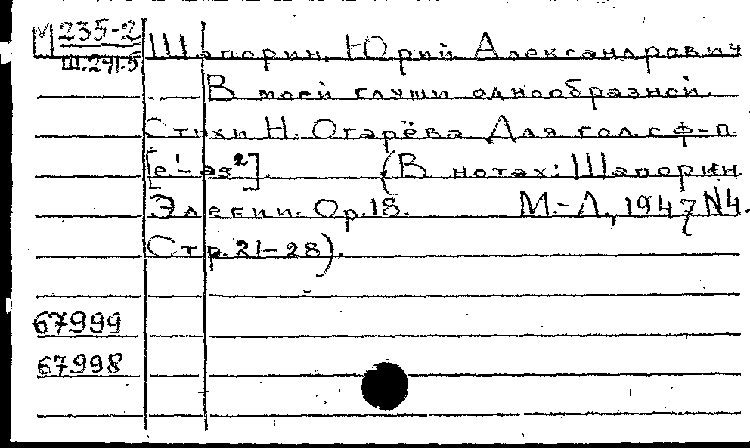 М 235-2
Ш.241.5
Шапорин, Юрий Александрович
В моей глуши однообразной.
Стихи Н. Огарёва. Для гол. с ф-п.
[e¹-as²]. (В нотах: Шапорин
Элегии. Ор. 18. М.-Л., 1947 N4.
Стр. 21-28).
67999
67998